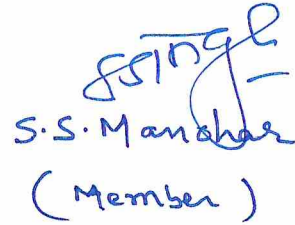 S.S. Manohar
(Member)